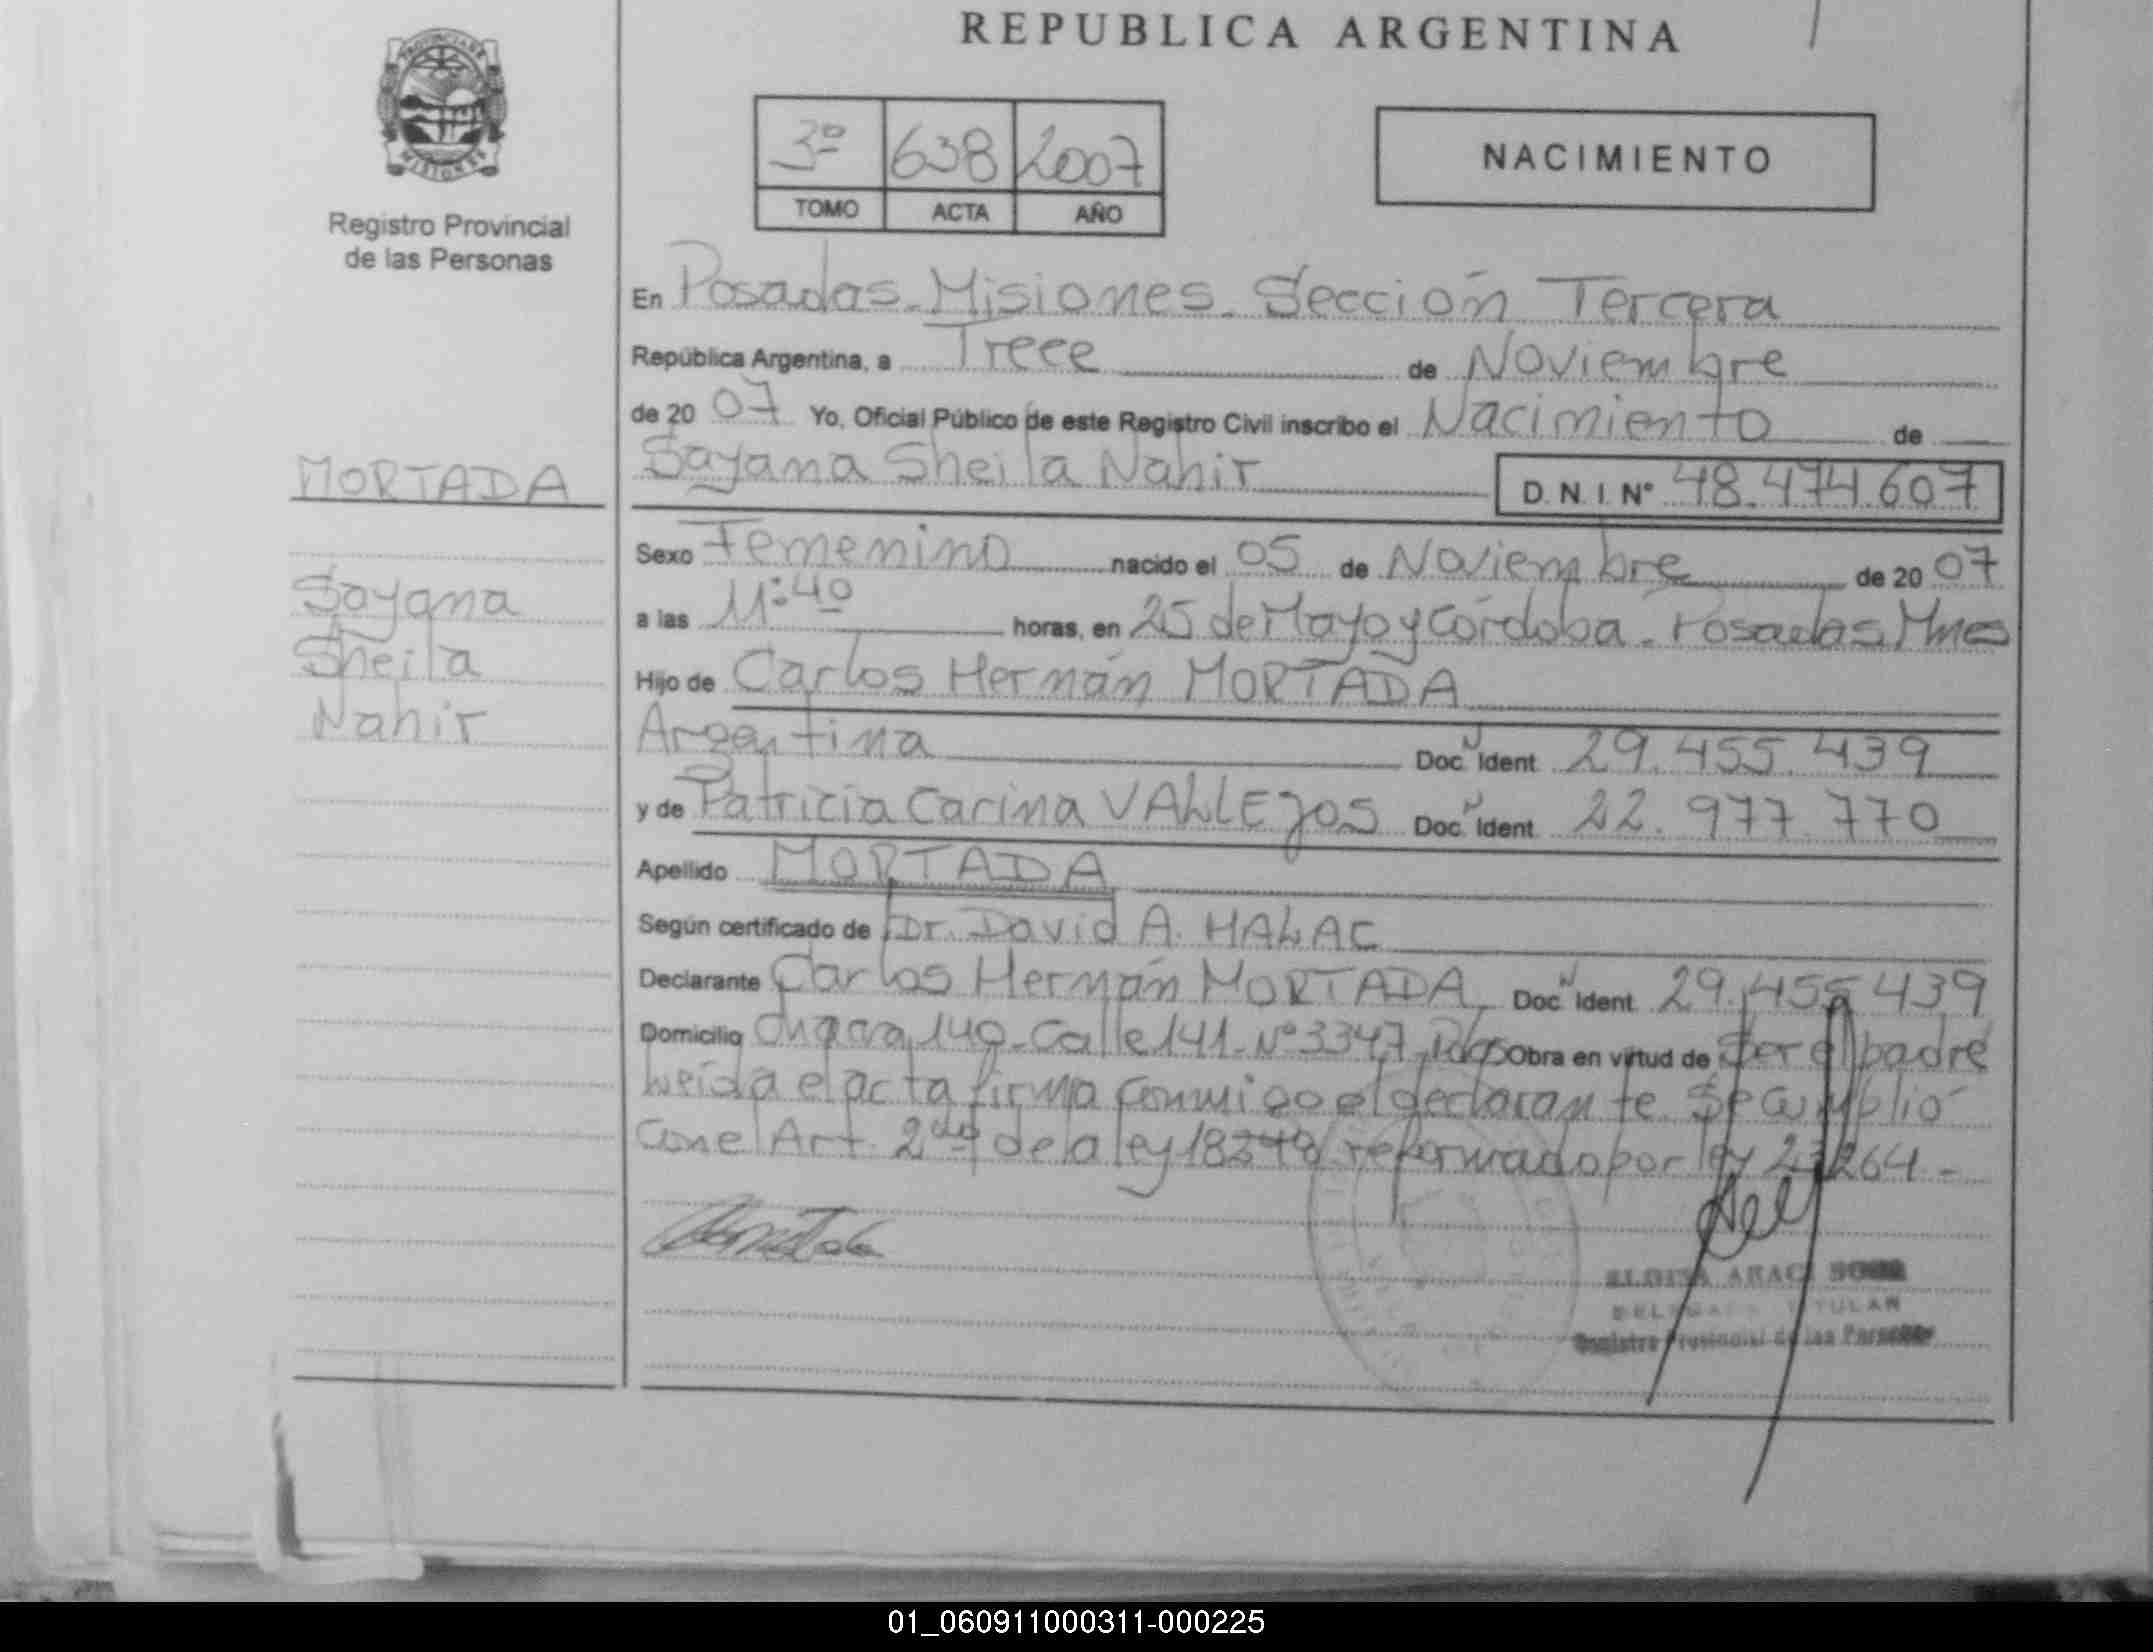 PROVINCIA DE
MISIONES
Registro Provincial
de las Personas
MORTADA
Sayana
Sheila
Nahir
REPUBLICA ARGENTINA
3º 638 2007
TOMO ACTA AÑO
NACIMIENTO
En Posadas - Misiones - Sección Tercera
República Argentina, a Trece de Noviembre
de 20 07 Yo, Oficial Público de este Registro Civil inscribo el Nacimiento de
Sayana Sheila Nahir D.N.I. Nº 48.474.607
Sexo Femenino nacido el 05 de Noviembre de 20 07
a las 11:40 horas, en 25 de Mayo y Córdoba - Posadas, Mnes
Hijo de Carlos Hernán MORTADA
Argentina Doc. Ident 29.455.439
y de Patricia Carina VALLEJOS Doc. Ident 22.977.770
Apellido MORTADA
Según certificado de Dr. David A. HALAC
Declarante Carlos Hernán MORTADA Doc. Ident 29.455.439
Domicilio Chacra 140 - Calle 141 - Nº 3347, Pdas Obra en virtud de Ser el padre
Leída el acta firma conmigo el declarante. Se cumplió
con el Art. 2do de la ley 18248 reformado por ley 23264 -
TITULAR
Registro Provincial de las Personas
01_060911000311-000225